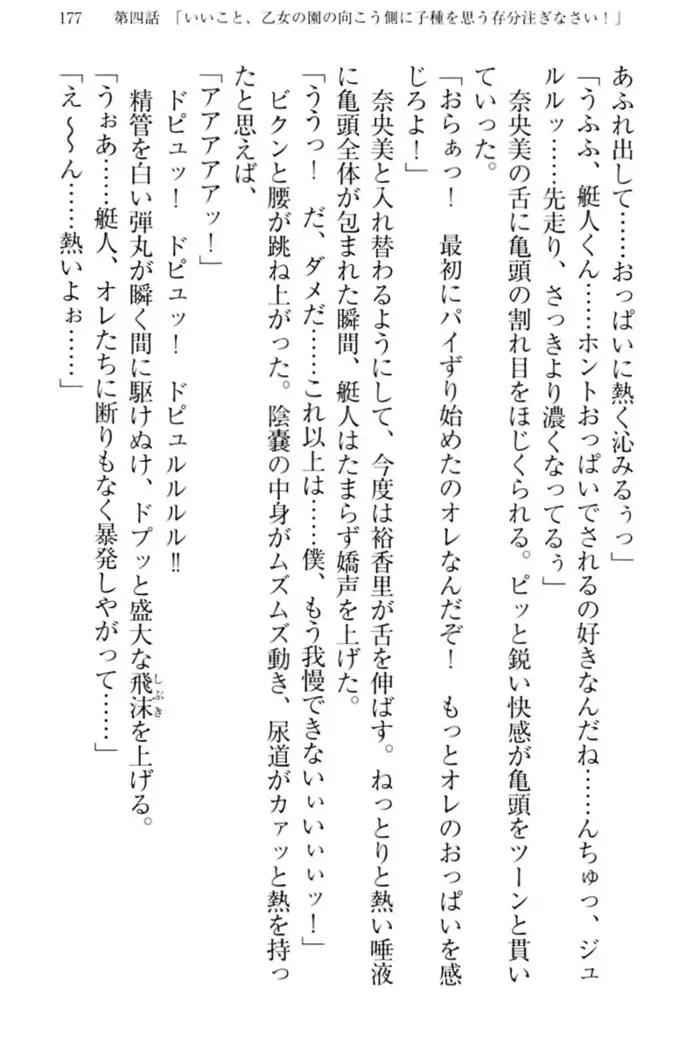 177　第四話　「いいこと、乙女の園の向こう側に子種を思う存分注ぎなさい！」
あふれ出して……おっぱいに熱く沁みるぅっ」
「うふふ、艇人くん……ホントおっぱいでされるの好きなんだね……んちゅっ、ジュ
ルルッ……先走り、さっきより濃くなってるぅ」
　奈央美の舌に亀頭の割れ目をほじくられる。ピッと鋭い快感が亀頭をツーンと貫い
ていった。
「おらぁっ！　最初にパイずり始めたのオレなんだぞ！　もっとオレのおっぱいを感
じろよ！」
　奈央美と入れ替わるようにして、今度は裕香里が舌を伸ばす。ねっとりと熱い唾液
に亀頭全体が包まれた瞬間、艇人はたまらず嬌声を上げた。
「ううっ！　だ、ダメだ……これ以上は……僕、もう我慢できないぃぃぃぃッ！」
　ビクンと腰が跳ね上がった。陰嚢の中身がムズムズ動き、尿道がカァッと熱を持っ
たと思えば、
「アアアアアッ！」
　ドピュッ！　ドピュッ！　ドピュルルルル‼
　精管を白い弾丸が瞬く間に駆けぬけ、ドプッと盛大な飛沫を上げる。
しぶき
「うぉあ……艇人、オレたちに断りもなく暴発しやがって……」
「え〜〜ん……熱いよぉ……」